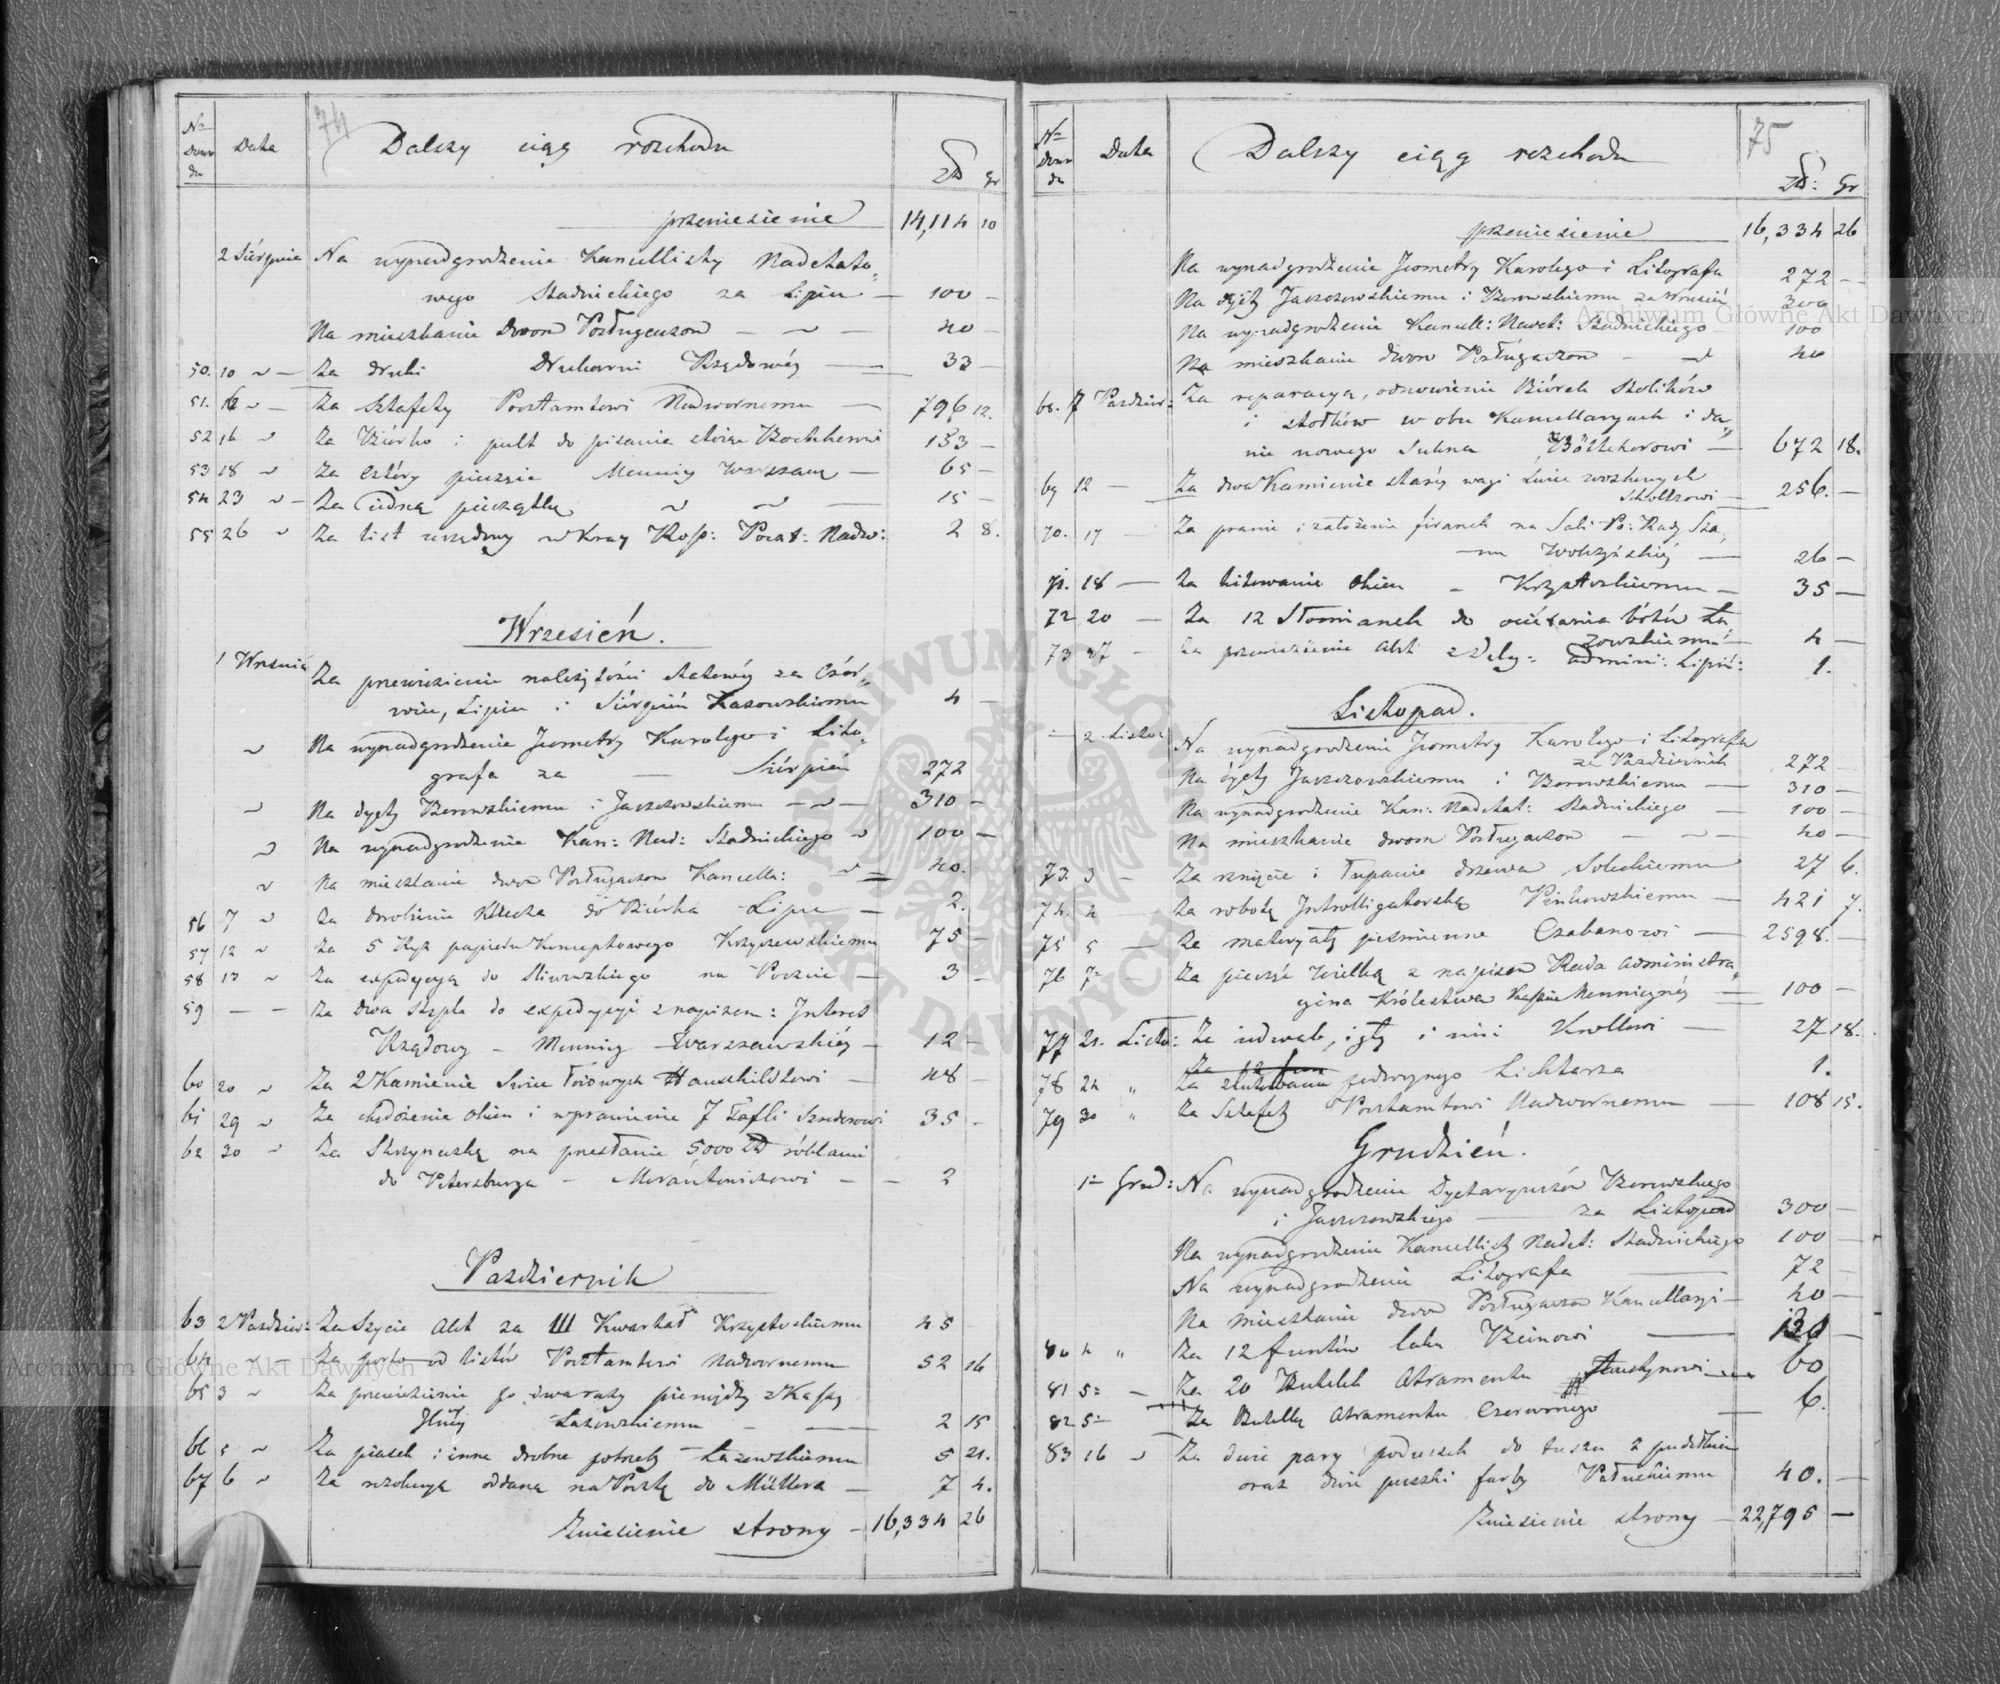 74
No Dowodu Data Dalszy ciąg rozchodu Zł gr
przeniesienie 14,114 10
2 Sierpnia Na wynadgrodzenie Kancellisty Nadetato-
wego Stadnickiego za Lipiec — 100 —
Na mieszkanie dwom Posługaczom — 40 —
50. 10 Za druki Drukarni Rządowéj — 33 —
51. 16 Za Sztafety Pocztamtowi Nadwornemu — 796 12.
52 16 Za Biórko i pult do pisania stojąc 133 —
53 18 Za cztéry pieczęcie Mennicy Warszaw — 65 —
54 23 Za iedną pieczątkę — 15 —
55 26 Za list urzędowy w Kray Ross: Poczt: Nadw: 2 8.
Wrzesień.
1 Września Za przewiezienie należytości etatowéj za Czér-
wiec, Lipiec i Sierpień Łazowskiemu 4 —
Na wynadgrodzenie Jeometry Karolego i Lito-
grafa za — Sierpień 272
Na dyety Borowskiemu i Jaszczowskiemu — 310 —
Na wynadgrodzenie Kan: Nad: Stadnickiego 100 —
Na mieszkanie dwom Posługaczom Kancella: 40.
56 7 Za dorobienie Klucza do Biórka Lipce — 2.
57 12 Za 5 Ryz papieru Konceptowego Krzyczewskiemu 75 —
58 13 Za expedycyą do na Poczcie — 3 —
59 — — Za dwa Sztęple do expedycyi z napisem: Interes
Rządowy — Mennicy Warszawskiéj — 12 —
60 20 Za 2 Kamienie Świec łoiowych Hauschildtowi — 48 —
61 29 Za chędożenie okien i wprawienie 7 Tafli Sznderowi 35 —
62 30 Za Skrzyneczkę na przesłanie 5000 Zł róblami
do Petersburga — — — 2
Październik
63 2 Paździer: Za Szycie Akt za III Kwartał Krzysztoskiemu 45
64 Za porto od listów Pocztamtowi Nadwornemu 52 16
65 3 Za przewiezienie po dwa razy pieniędzy z Kassy
Głłéj Łazowskiemu — 2 15
66 5 Za piasek i inne drobne potrzeby Łazowskiemu 5 21.
67 6 Za rezolucyą oddaną na Pocztę do Müllera — 7 4.
Zniesienie strony — 16,334 26
75
No Dowodu Data Dalszy ciąg rozchodu Zł: Gr
przeniesienie 16,334 26
Na wynadgrodzenie Jeometry Karolego i Litografa 272 —
Na dyety Jaszczowskiemu i Borowskiemu za Wrzesień 300
Na wynadgrodzenie Kancell: Nadet: Stadnickiego 100
Na mieszkanie dwom Posługaczom — 40
68. 7 Paździer: Za reparacyą, odnowienie Biórek Stolików
i stołków w obu Kancellaryach i da-
nie nowego Sukna Böttcherowi — 672 18.
69 12 — Za dwa Kamienie staréj wagi świec woskowych
Scholtzowi — 256. —
70. 17 — Za pranie i założenie firanek na Sali Po: Rady Sta-
nu — 26 —
71. 18 — Za kitowanie okien — Krzysztoskiemu — 35 —
72 20 — Za 12 Słomianek do ociérania bótów Ła-
zowskiemu — 4 —
73 27 — Za przewiezienie Akt z Dely: admini: Lipiń: 1.
Listopad.
2 Listop: Na wynadgrodzenie Jeometry Karolego i Litografa
za Październik 272 —
Na dyety Jaszczowskiemu i Borowskiemu — 310 —
Na wynadgrodzenie Kan: Nadetat: Stadnickiego — 100 —
Na mieszkanie dwom Posługaczom — 40 —
73. 3 — Za rznięcie i łupanie drzewa Soleckiemu 27 6.
74. 4 — Za robotę Introligatorską Pińkowskiemu — 421 7.
75 5 — Za materyały piśmienne Czabanowi — 2598. —
76 7 — Za pieczęć wielką z napisem Rada Administra-
cyjna Królestwa Polskiego Menniczéj — 100 —
77 21. Listo: Za iedwab, igły i nici Krollowi — 27 18.
78 24 „ Za zlutowanie podwójnego Lichtarza 1.
79 30 „ Za Sztafetę Pocztamtowi Nadwornemu — 108 15.
Grudzień.
1 Grud: Na wynadgrodzenie Dyetaryuszów Borowskiego
i Jaszczowskiego — za Listopad 300 —
Na wynadgrodzenie Kancellisty Nadet: Stadnickiego 100 —
Na wynadgrodzenie Litografa — 72 —
Na mieszkanie dwom Posługaczom Kancellaryi — 40 —
80 4 „ Za 12 funtów laku —
81 5 — Za 20 Butelek Atramentu — 60
82 5 Za Butelkę Atramentu Czerwonego — 6.
83 16 Za dwie pary poduszek do tuszu z pudełkiem
oraz dwie puszki farby Patuckiemu 40. —
Zniesienie strony — 22,795 —
Archiwum Główne Akt Dawnych
Archiwum Główne Akt Dawnych
ARCHIWUM GŁÓWNE AKT DAWNYCH